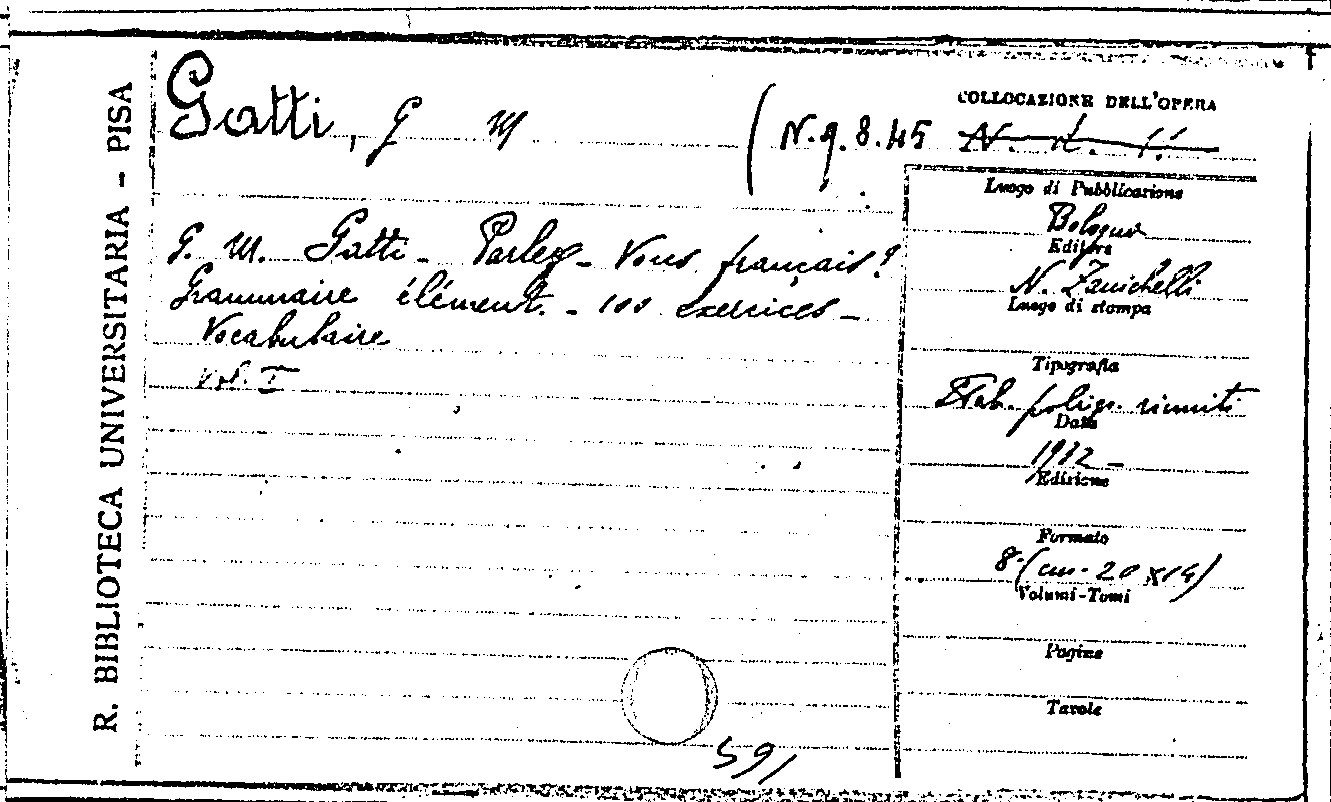 R. BIBLIOTECA UNIVERSITARIA - PISA
Gatti, G M
(N.9.8.45
COLLOCAZIONE DELL'OPERA
G. M. Gatti - Parlez-Vous français?
Grammaire élément. - 100 exercices -
Vocabulaire
Vol. I
Luogo di Pubblicazione
Bologna
Editore
N. Zanichelli
Luogo di stampa
Tipografia
Stab. poligr. riuniti
Data
1932 -
Edizione
Formato
8° (cm. 20 x 14)
Volumi-Tomi
Pagine
Tavole
591